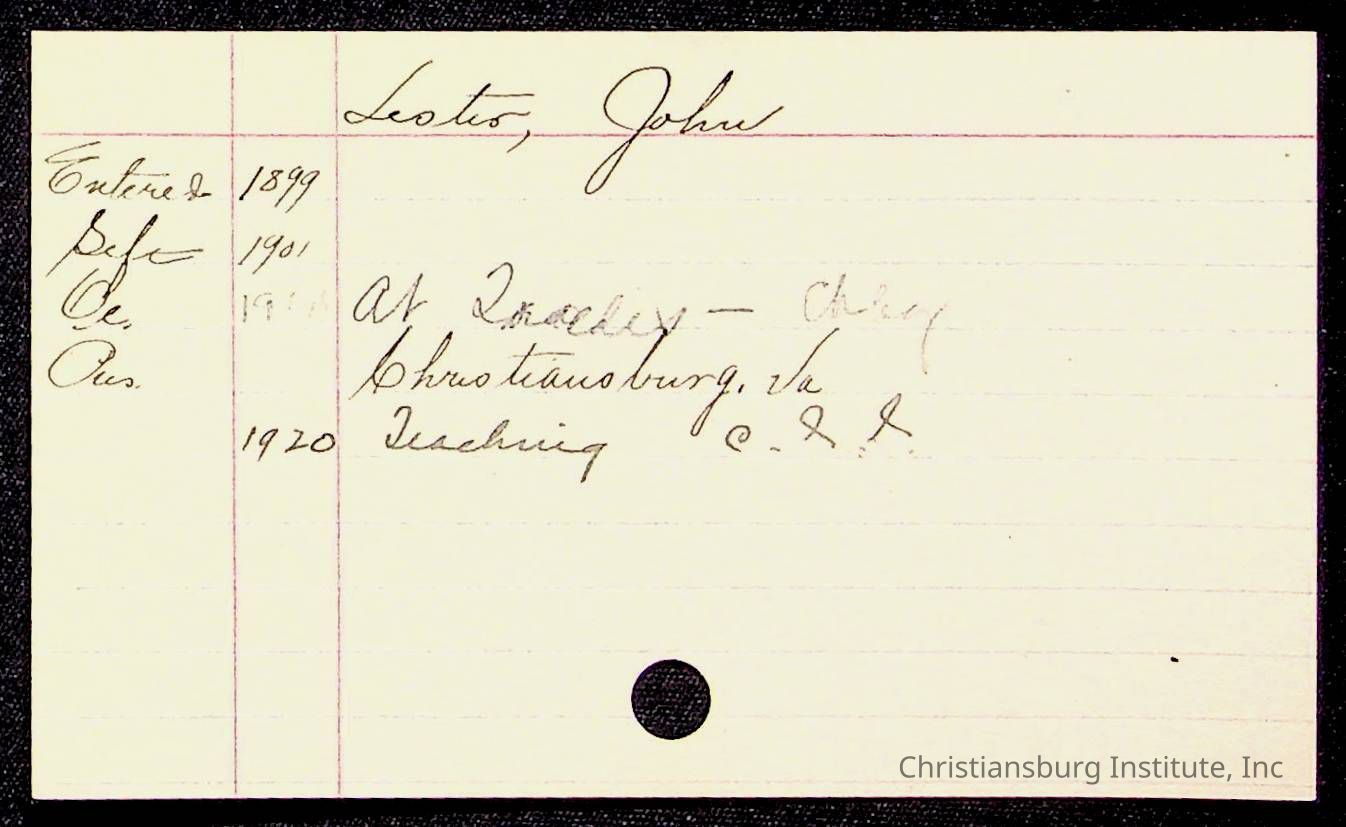 Lester, John
Entered 1899
Left 1901
Oc. At
Pres. Christiansburg, Va
1920 Teaching C. I. I.
Christiansburg Institute, Inc